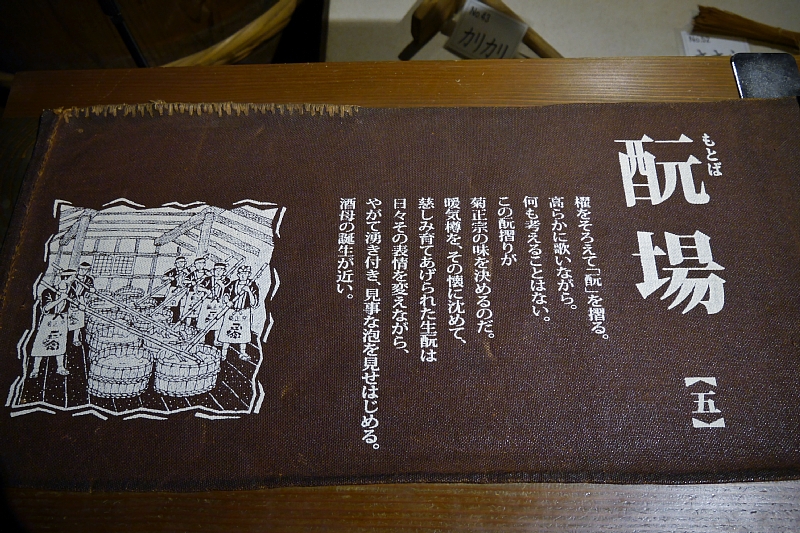 酛場
もとば
【五】
櫂をそろえて「酛」を摺る。
高らかに歌いながら。
何も考えることはない。
この酛摺りが
菊正宗の味を決めるのだ。
暖気樽を、その懐に沈めて、
慈しみ育てあげられた生酛は
日々その表情を変えながら、
やがて湧き付き、見事な泡を見せはじめる。
酒母の誕生が近い。
No.43
カリカリ